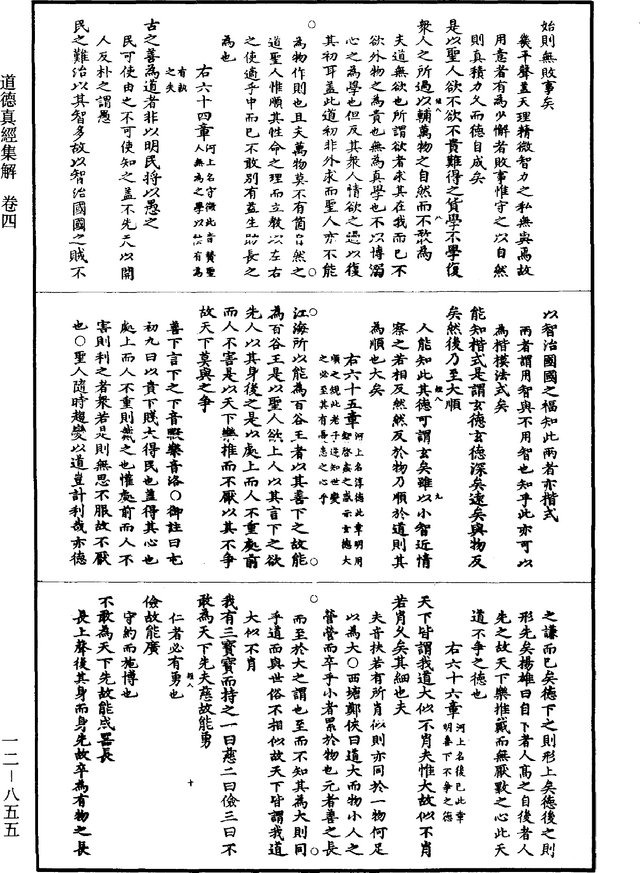 道德真經集解　卷四
始則無敗事矣
幾平聲蓋天理精微智力之私無與焉故
用意者有為少懈者敗事惟守之以自然
則真積力久而德自成矣
是以聖人欲不欲不貴難得之貨學不學復
衆人之所過以輔萬物之自然而不敢為
夫道無欲也所謂欲者求其在我而已不
欲外物之為貴也無為真學也不以博溺
心之為學也但反其衆人情欲之過以復
其初耳蓋此道初非外求而聖人亦不能
為物作則也且夫萬物莫不有箇自然之
道聖人惟順其性命之理而立教以左右
之使適乎中而已不敢別有益生助長之
為也
右六十四章
河上名守微此言賢聖
人無為之學以救有為
有執
之失
古之善為道者非以明民將以愚之
民可使由之不可使知之蓋不先天以開
人反朴之謂愚
民之難治以其智多故以智治國國之賊不
以智治國國之福知此兩者亦楷式
兩者謂用智與不用智也知乎此亦可以
為楷模法式矣
能知楷式是謂玄德玄德深矣遠矣與物反
矣然後乃至大順
人能知此其德可謂玄矣雖以小智近情
察之若相反然然反於物乃順於道則其
為順也大矣
右六十五章
河上名淳德此章明用
智啓姦之戒示玄德大
順之規此老子逆知世變
之必至其有長慮之心乎
江海所以能為百谷王者以其善下之故能
為百谷王是以聖人欲上人以其言下之欲
先人以其身後之是以處上而人不重處前
而人不害是以天下樂推而不厭以其不爭
故天下莫與之爭
善下言下之下音暇樂音洛○御註曰屯
初九曰以貴下賤大得民也蓋得其心也
處上而人不重則戴之也懽處前而人不
害則利之者衆若是則無思不服故不厭
也○聖人隨時趨變以道豈計利哉亦德
之謙而已矣德下之則形上矣德後之則
形先矣揚雄曰自下者人高之自後者人
先之故天下樂推戴而無厭斁之心此天
道不爭之德也
右六十六章
河上名後已此章
明善下不爭之德
天下皆謂我道大似不肖夫惟大故似不肖
若肖久矣其細也夫
夫音扶若有所肖似則亦同於一物何足
以為大○西塘鄭俠曰道大而物小人之
營營而卒乎小者累於物也元者善之長
而至於大之謂也至而不知其為大則同
乎道而與世俗不相似故天下皆謂我道
大似不肖
我有三寶寶而持之一曰慈二曰儉三曰不
敢為天下先夫慈故能勇
仁者必有勇也
儉故能廣
守約而施博也
不敢為天下先故能成器長
長上聲後其身而身先故卒為有物之長
一二－八五五